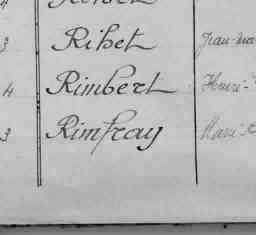 3 Ribet Jean-
4 Rimbert Henri-
3 Rimfray Mari-